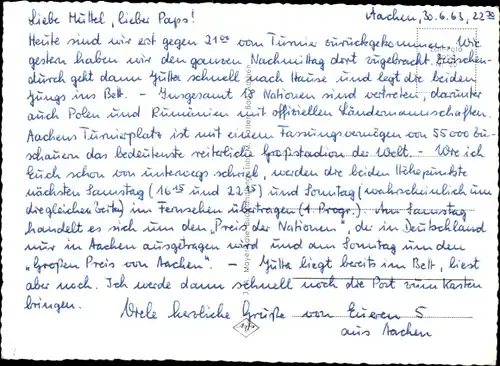 Liebe Muttel, lieber Paps! Aachen, 30.6.63, 22³⁰
Heute sind wir erst gegen 21⁰⁰ vom Turnier zurückgekommen. Wie
gestern haben wir den ganzen Nachmittag dort zugebracht. Zwischen-
durch geht dann Jutta schnell nach Hause und legt die beiden
Jungs ins Bett. – Insgesamt 18 Nationen sind vertreten, darunter
auch Polen und Rumänien mit offiziellen Ländermannschaften.
Aachens Turnierplatz ist mit einem Fassungsvermögen von 55000 Zu-
schauern das bedeutenste reiterliche Großstadion der Welt. – Wie ich
Euch schon von unterwegs schrieb, werden die beiden Höhepunkte
nächsten Samstag (16¹⁵ und 22²⁵) und Sonntag (wahrscheinlich um
die gleichen Zeiten) im Fernsehen übertragen (1. Progr.). Am Samstag
handelt es sich um den „Preis der Nationen", der in Deutschland
nur in Aachen ausgetragen wird und am Sonntag um den
„Großen Preis von Aachen". – Jutta liegt bereits im Bett, liest
aber noch. Ich werde dann schnell noch die Post zum Kasten
bringen.
Viele herzliche Grüße von Eueren 5
aus Aachen